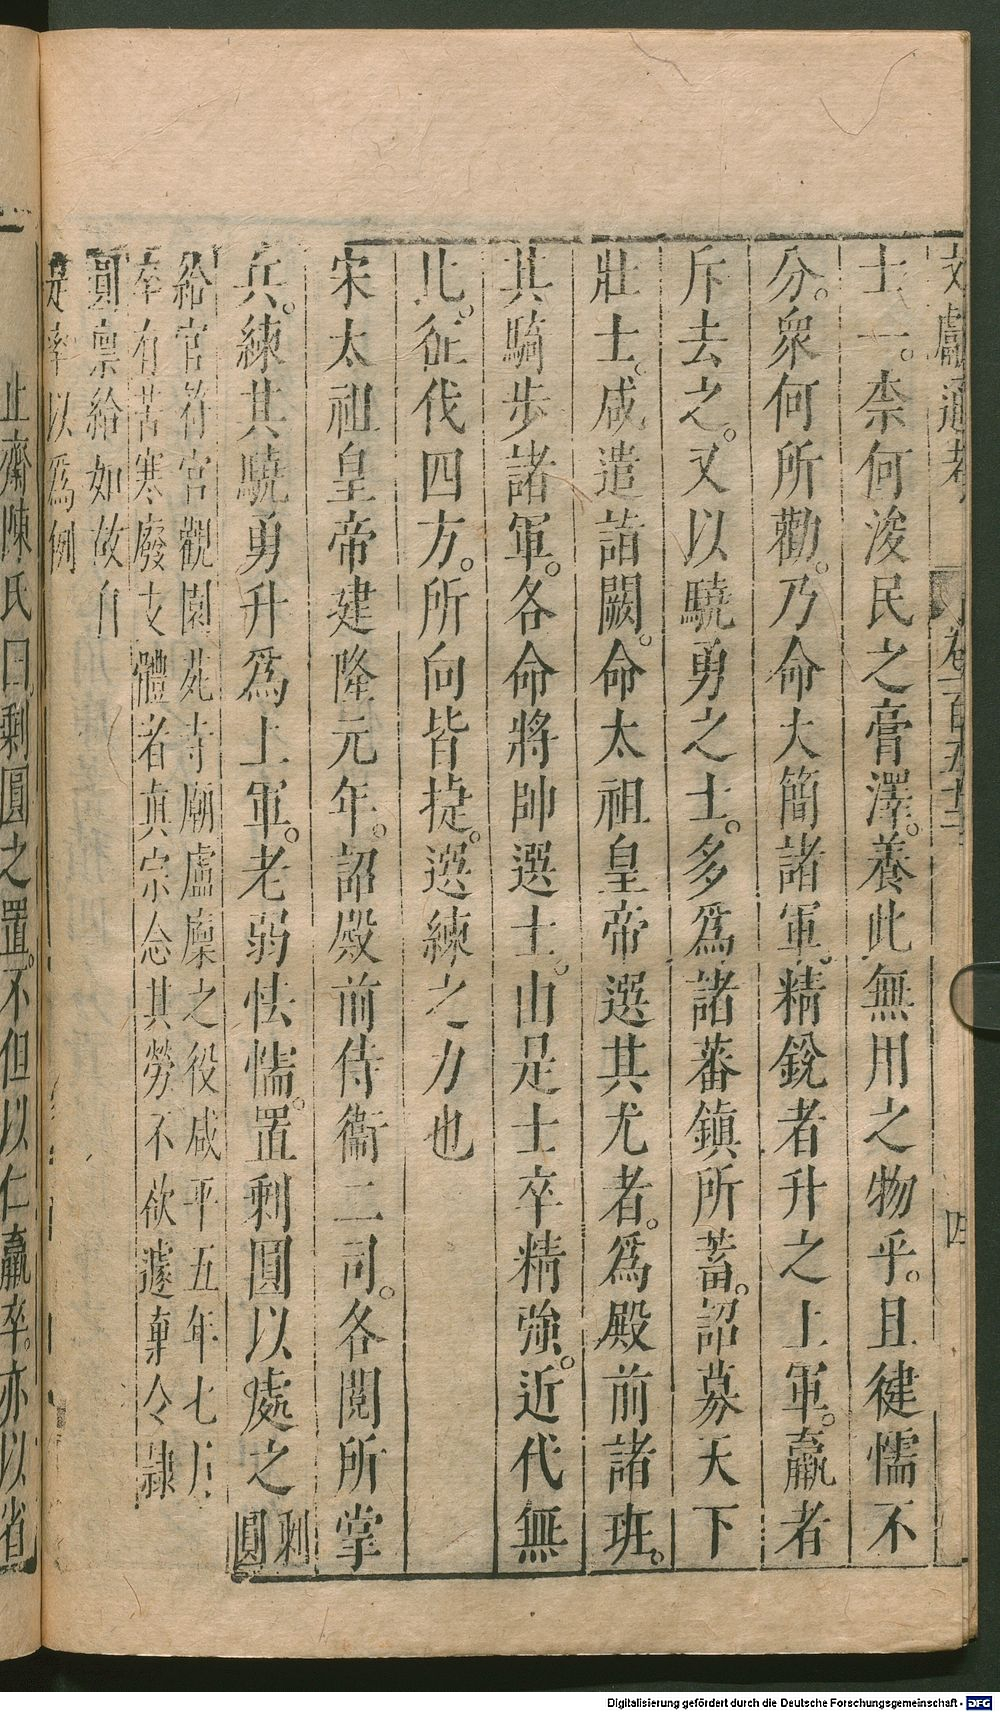 文獻通考 卷一百五十二 四
士一。柰何浚民之膏澤。養此無用之物乎。且健懦不
分。衆何所勸。乃命大簡諸軍。精銳者升之上軍。羸者
斥去之。又以驍勇之士。多爲諸蕃鎭所蓄。詔募天下
壯士。咸遣詣闕。命太祖皇帝選其尤者。爲殿前諸班。
其騎步諸軍。各命將帥選士。由是士卒精強。近代無
比。征伐四方。所向皆捷。選練之力也
宋太祖皇帝建隆元年。詔殿前侍衞二司。各閱所掌
兵。練其驍勇升爲上軍。老弱怯懦。置剩圓以處之剩圓
給官符宮觀園苑寺廟盧廩之役咸平五年七月
奉有苦寒廢支體者眞宗念其勞不欲遽棄令隷
剩圓廩給如故自
是率以爲例
止齋陳氏曰。剩圓之置。不但以仁羸卒。亦以省
Digitalisierung gefördert durch die Deutsche Forschungsgemeinschaft - DFG